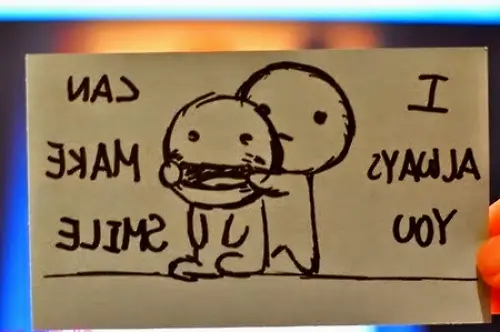 I CAN
ALWAYS MAKE
YOU SMILE